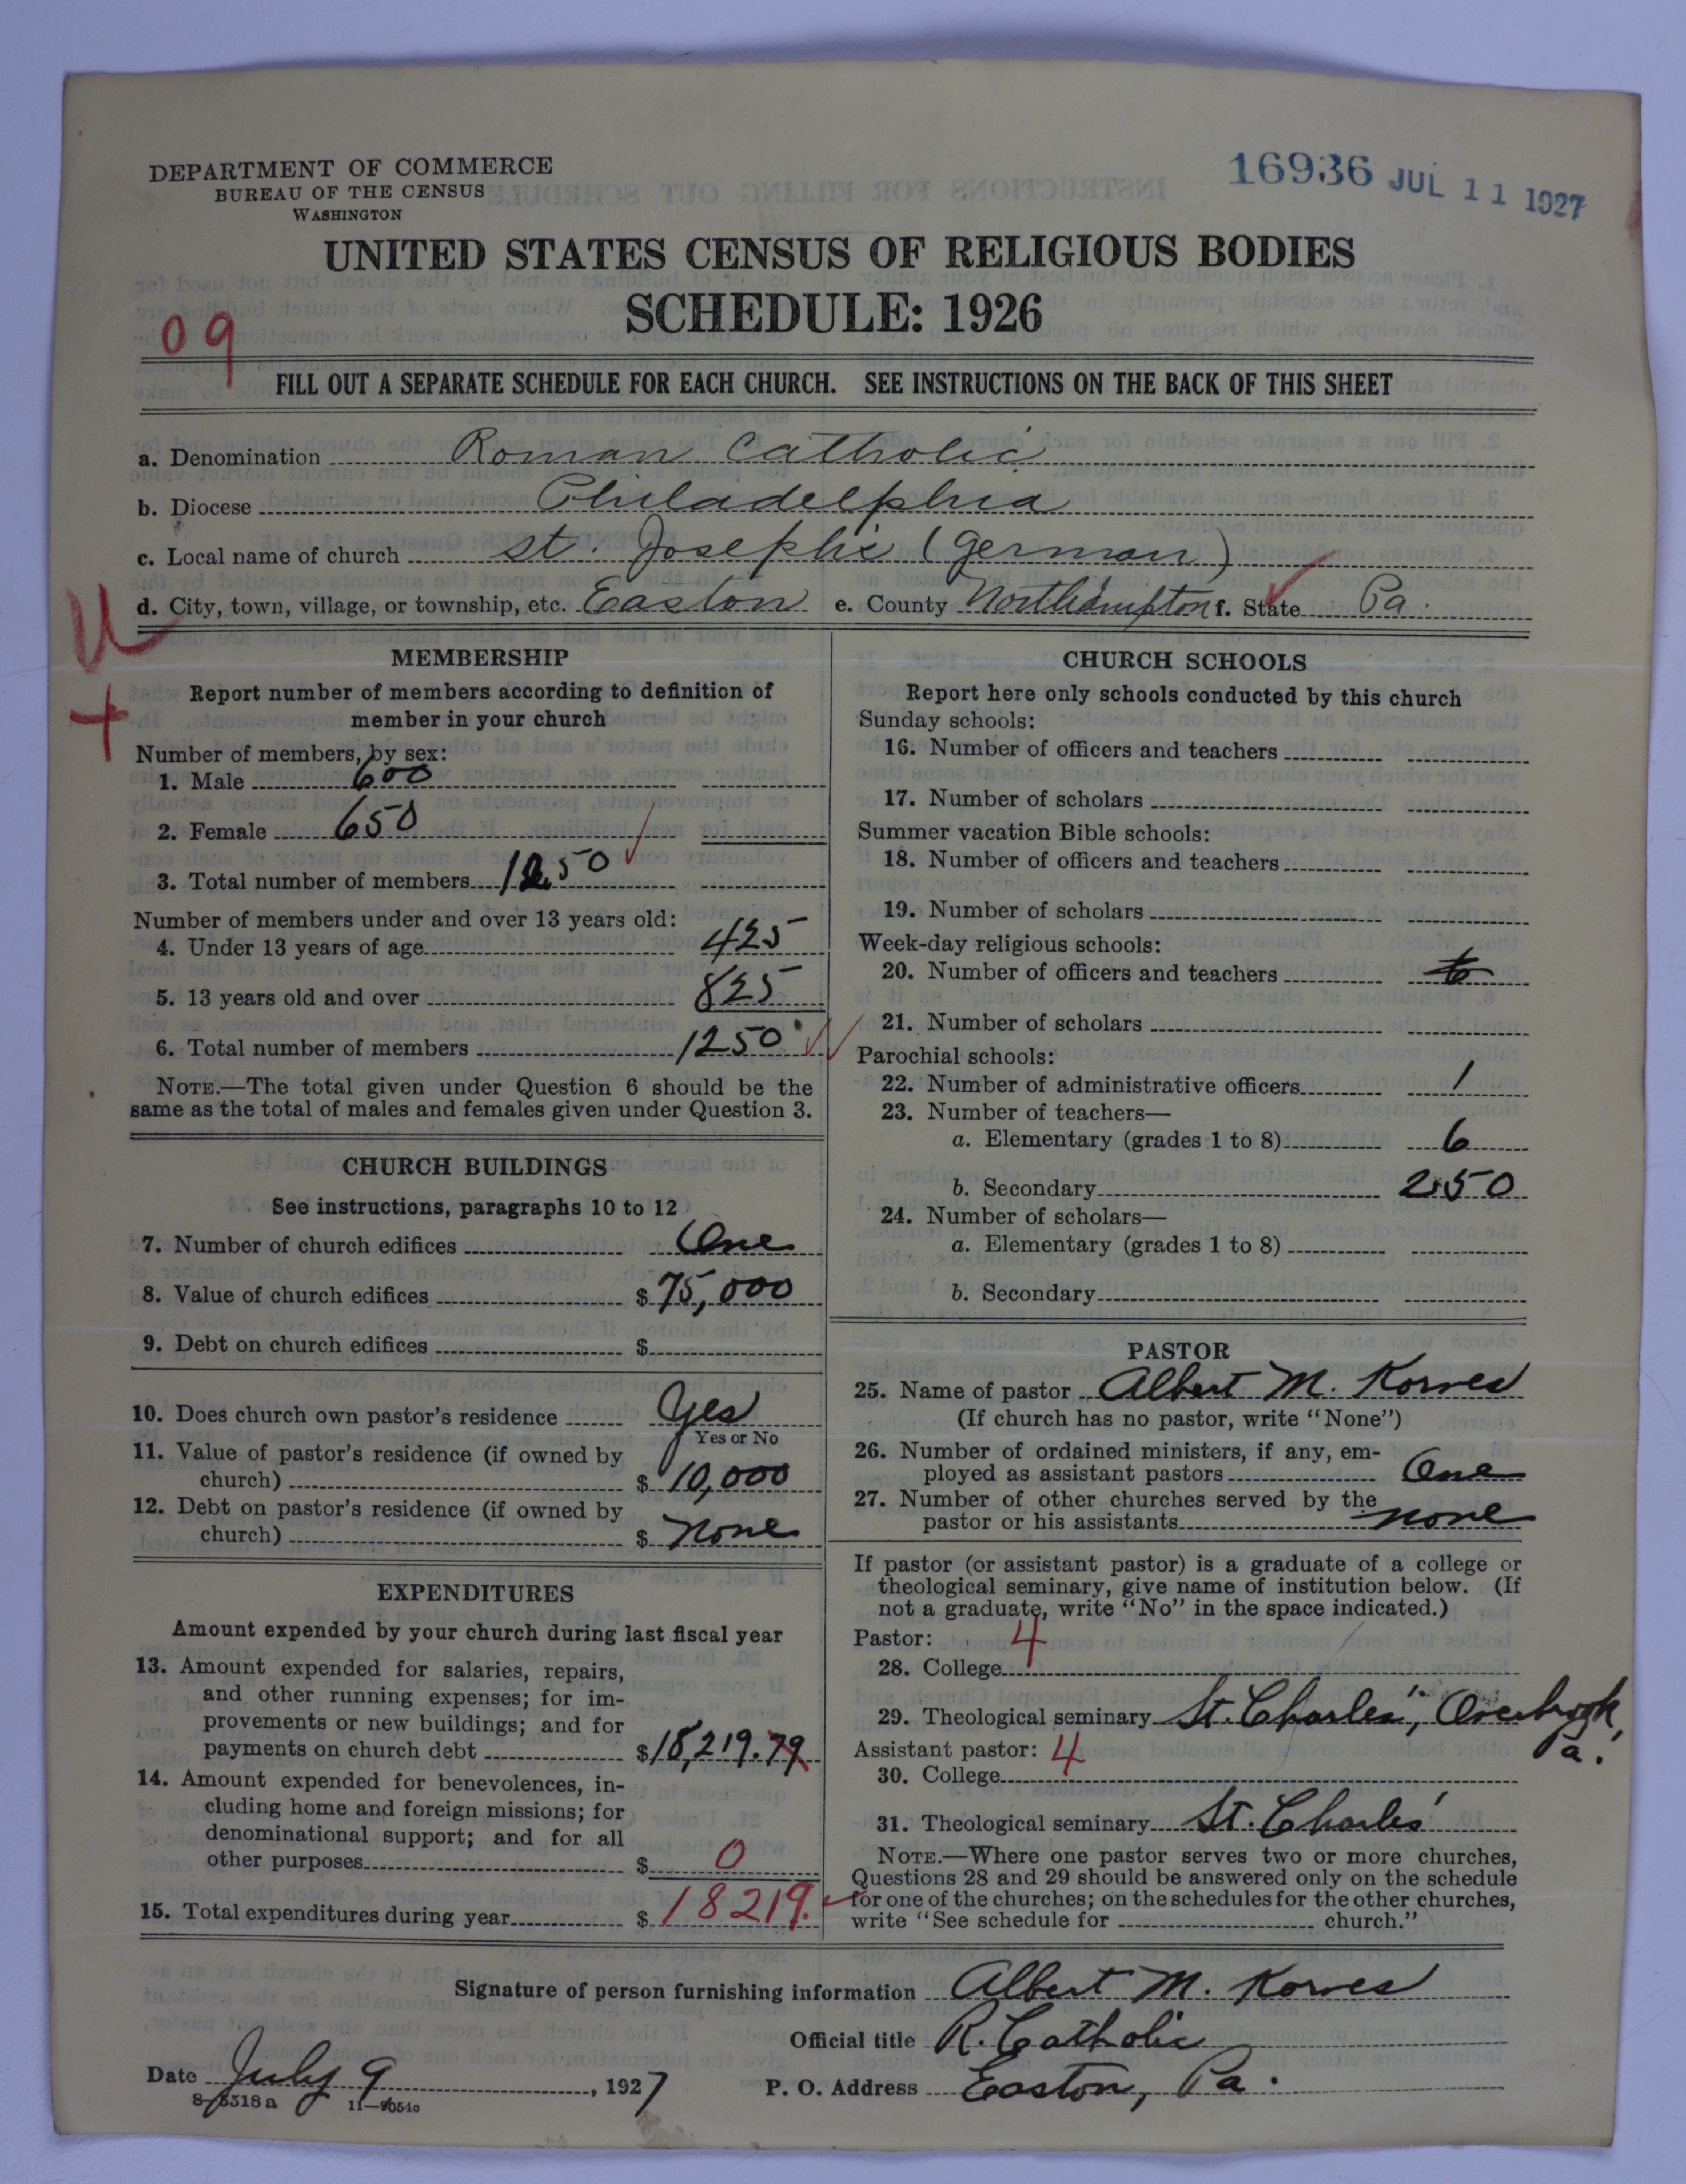 DEPARTMENT OF COMMERCE
BUREAU OF THE CENSUS
WASHINGTON
16936 JUL 11 1927
UNITED STATES CENSUS OF RELIGIOUS BODIES
SCHEDULE: 1926
09
FILL OUT A SEPARATE SCHEDULE FOR EACH CHURCH. SEE INSTRUCTIONS ON THE BACK OF THIS SHEET
a. Denomination Roman Catholic
b. Diocese Philadelphia
c. Local name of church St. Joseph's (German)
d. City, town, village, or township, etc. Easton e. County Northampton f. State Pa.
MEMBERSHIP
Report number of members according to definition of
member in your church
Number of members, by sex:
1. Male 600
2. Female 650
3. Total number of members 1250
Number of members under and over 13 years old:
4. Under 13 years of age 425
5. 13 years old and over 825
6. Total number of members 1250
NOTE.—The total given under Question 6 should be the
same as the total of males and females given under Question 3.
CHURCH BUILDINGS
See instructions, paragraphs 10 to 12
7. Number of church edifices One
8. Value of church edifices $ 75,000
9. Debt on church edifices $
10. Does church own pastor's residence Yes
Yes or No
11. Value of pastor's residence (if owned by
church) $ 10,000
12. Debt on pastor's residence (if owned by
church) $ none
EXPENDITURES
Amount expended by your church during last fiscal year
13. Amount expended for salaries, repairs,
and other running expenses; for im-
provements or new buildings; and for
payments on church debt $ 18,219.79
14. Amount expended for benevolences, in-
cluding home and foreign missions; for
denominational support; and for all
other purposes $ 0
15. Total expenditures during year $ 18219.
CHURCH SCHOOLS
Report here only schools conducted by this church
Sunday schools:
16. Number of officers and teachers
17. Number of scholars
Summer vacation Bible schools:
18. Number of officers and teachers
19. Number of scholars
Week-day religious schools:
20. Number of officers and teachers 6
21. Number of scholars
Parochial schools:
22. Number of administrative officers 1
23. Number of teachers—
a. Elementary (grades 1 to 8) 6
b. Secondary 250
24. Number of scholars—
a. Elementary (grades 1 to 8)
b. Secondary
PASTOR
25. Name of pastor Albert M. Korves
(If church has no pastor, write "None")
26. Number of ordained ministers, if any, em-
ployed as assistant pastors One
27. Number of other churches served by the
pastor or his assistants none
If pastor (or assistant pastor) is a graduate of a college or
theological seminary, give name of institution below. (If
not a graduate, write "No" in the space indicated.)
Pastor: 4
28. College
29. Theological seminary St. Charles', Overbrook,
Pa.
Assistant pastor: 4
30. College
31. Theological seminary St. Charles'
NOTE.—Where one pastor serves two or more churches,
Questions 28 and 29 should be answered only on the schedule
for one of the churches; on the schedules for the other churches,
write "See schedule for church."
Signature of person furnishing information Albert M. Korves
Official title R. Catholic
Date July 9, 1927 P. O. Address Easton, Pa.
8-5518a